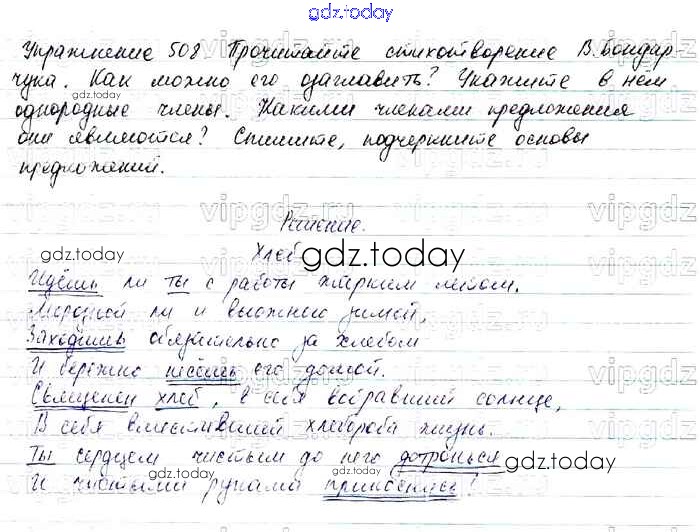 gdz.today
Упражнение 508 Прочитайте стихотворение В. Бондар-
чука. Как можно его озаглавить? Укажите в нём
gdz.today
однородные члены. Какими членами предложения
они являются? Спишите, подчеркните основы
предложений.
vipgdz.ru
Решение.
Хлеб
gdz.today
gdz.today
Идёшь ли ты с работы жарким летом,
Морозной ли и вьюжною зимой,
Заходишь обязательно за хлебом
И бережно несёшь его домой.
gdz.today
Священен хлеб, в себя вобравший солнце,
В себя вместивший хлебороба жизнь.
Ты сердцем чистым до него дотронься
gdz.today
И чистыми руками прикоснись!
gdz.today